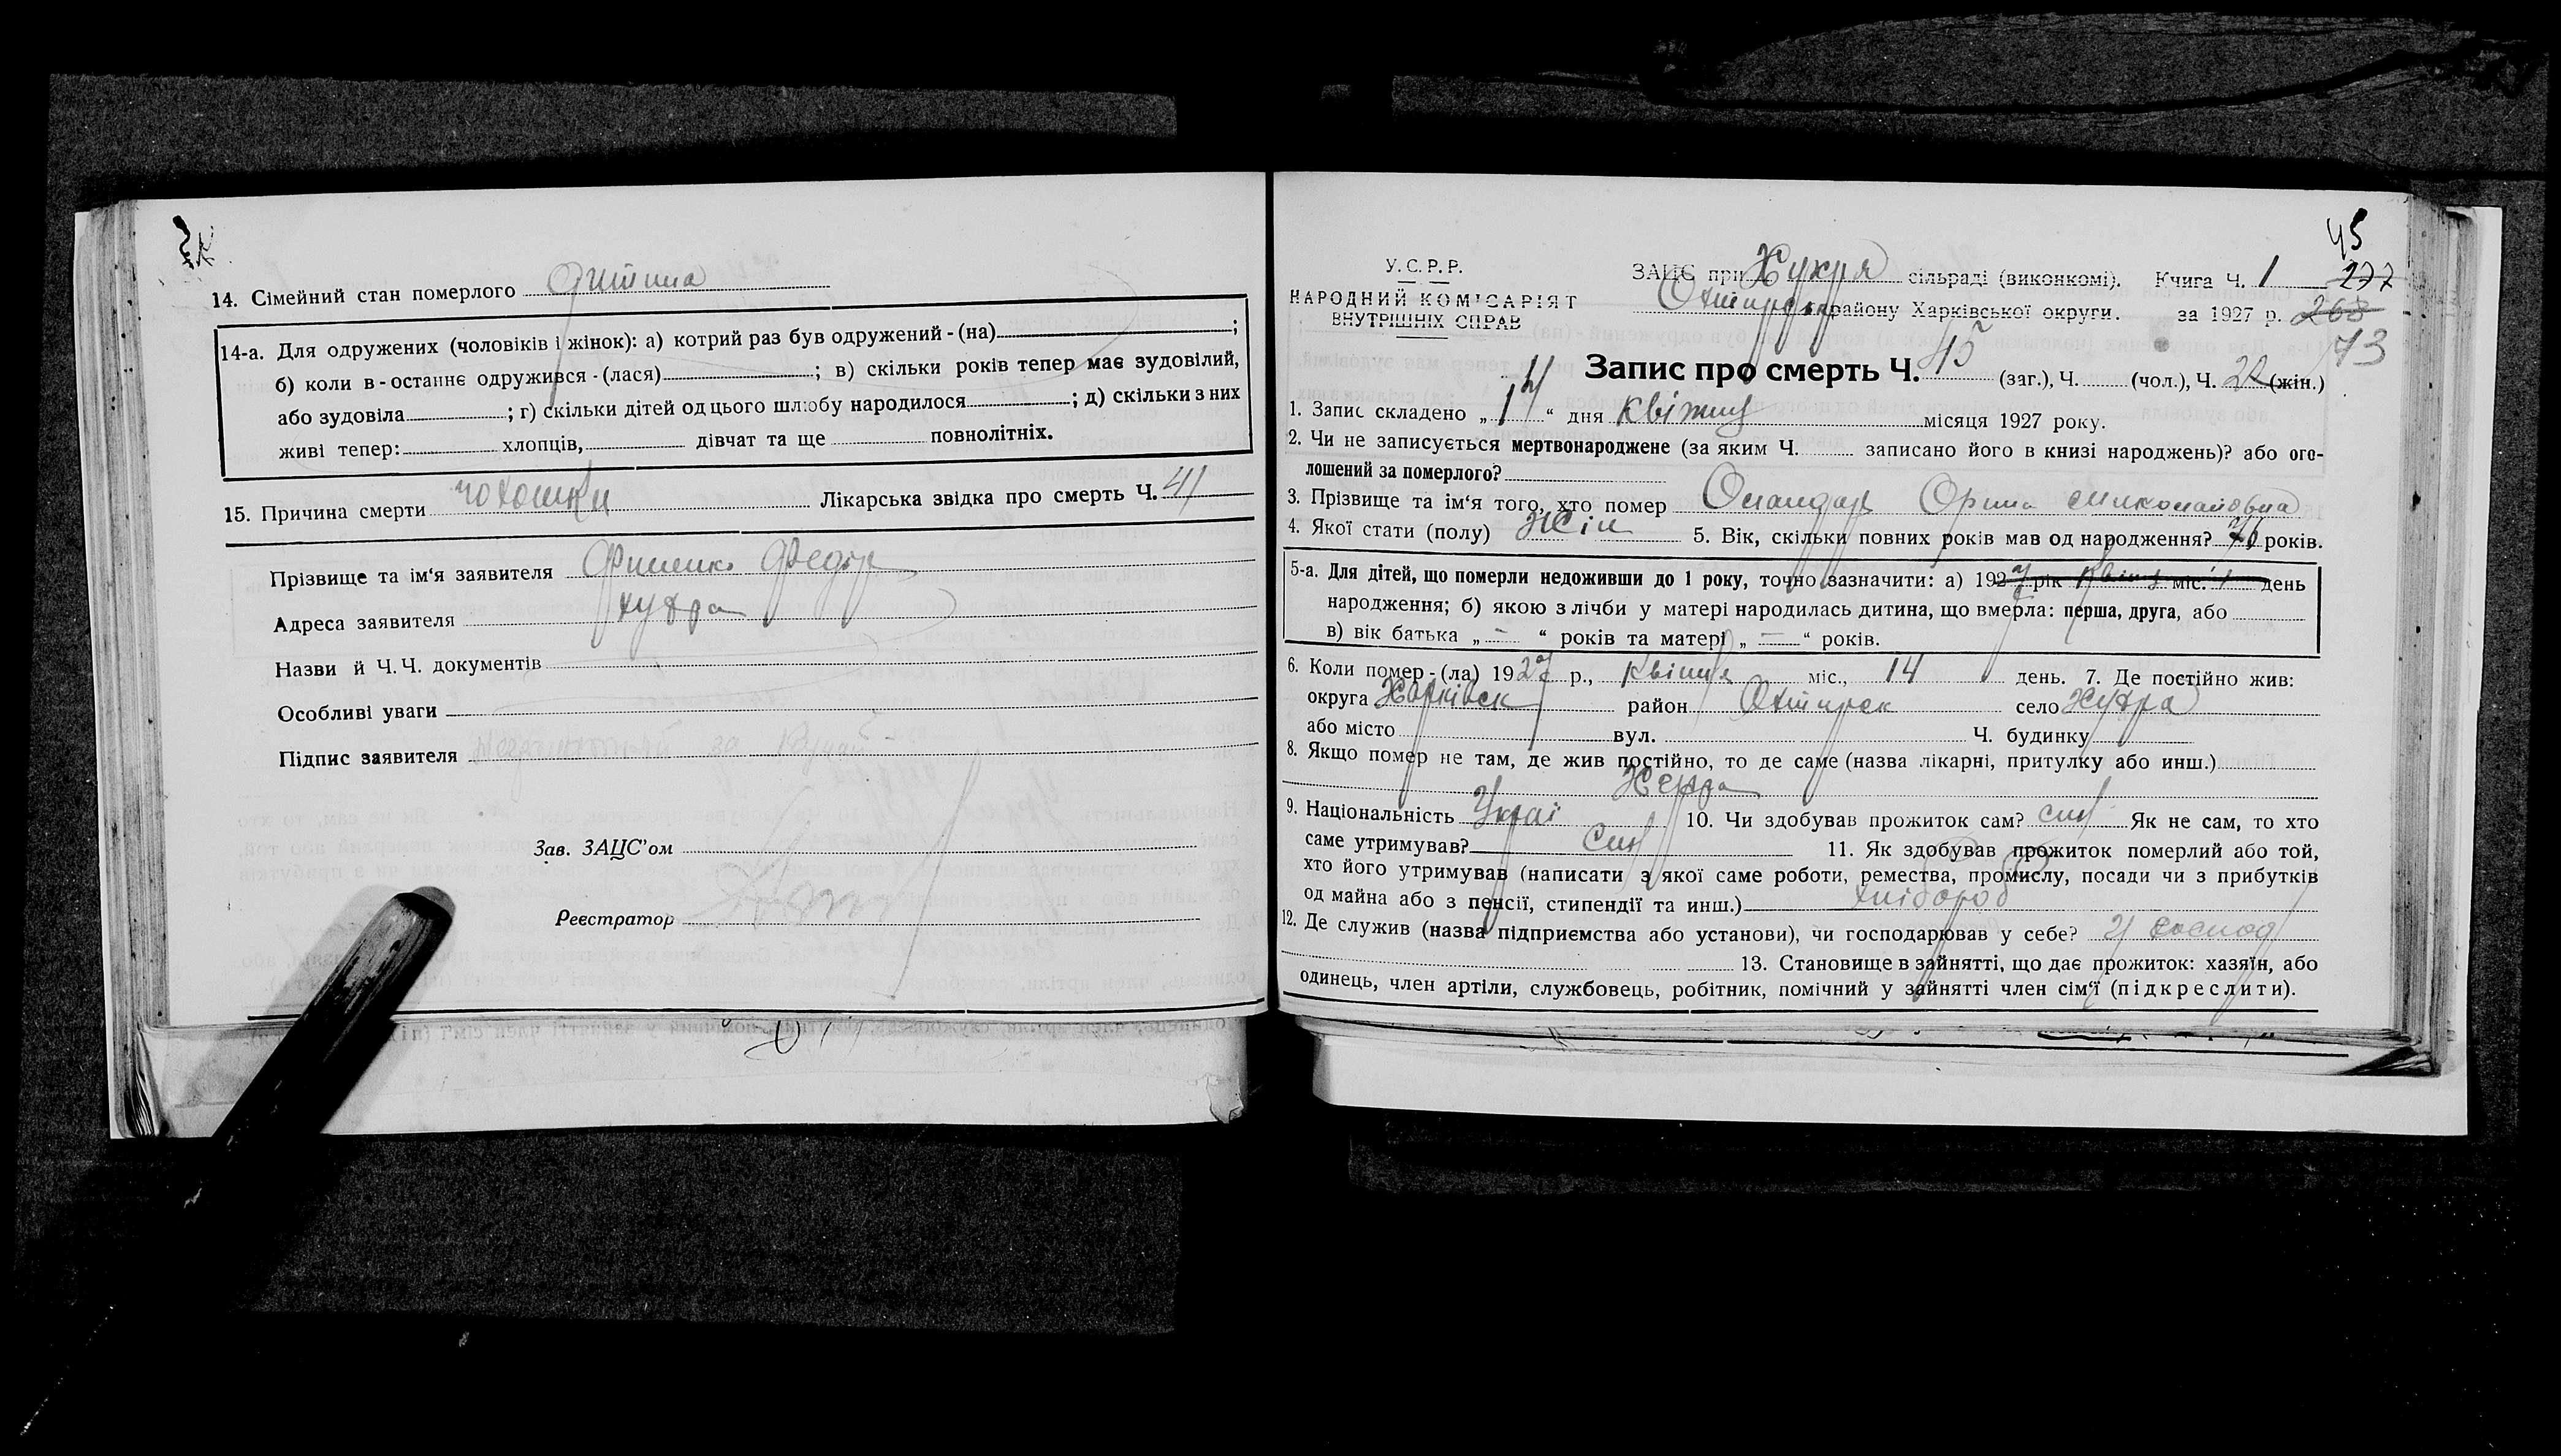 14. Сімейний стан померлого дитина
14-а. Для одружених (чоловіків і жінок): а) котрий раз був одружений - (на) ;
б) коли в - останнє одружився - (лася) ; в) скільки років тепер має зудовілий,
або зудовіла ; г) скільки дітей од цього шлюбу народилося ; д) скільки з них
живі тепер: хлопців, дівчат та ще повнолітніх.
15. Причина смерти Лікарська звідка про смерть Ч. 41
Прізвище та ім'я заявителя Федір
Адреса заявителя хухра
Назви й Ч. Ч. документів
Особливі уваги
Підпис заявителя
Зав. ЗАЦС'ом
Реєстратор
45
У. С. Р. Р.
НАРОДНИЙ КОМІСАРІЯТ
ВНУТРІШНІХ СПРАВ
ЗАЦС при Хухря сільраді (виконкомі). Книга Ч. 1 277
району Харківської округи. за 1927 р. 268
73
Запис про смерть Ч. 45 (заг.), Ч. (чол.), Ч. 22 (жін.)
1. Запис складено „ 14 “ дня квітня місяця 1927 року.
2. Чи не записується мертвонароджене (за яким Ч. записано його в книзі народжень)? або ого-
лошений за померлого?
3. Прізвище та ім'я того, хто помер Орина Миколаївна
4. Якої стати (полу) Жін 5. Вік, скільки повних років мав од народження? років.
5-а. Для дітей, що померли недоживши до 1 року, точно зазначити: а) 1927 рік міс. день
народження; б) якою з лічби у матері народилась дитина, що вмерла: перша, друга, або
в) вік батька „ – “ років та матері „ – “ років.
6. Коли помер - (ла) 1927 р., квітня міс., 14 день. 7. Де постійно жив:
округа Харківск район Охтирск село Хухра
або місто вул. Ч. будинку
8. Якщо помер не там, де жив постійно, то де саме (назва лікарні, притулку або инш.)
9. Національність Украї 10. Чи здобував прожиток сам? син Як не сам, то хто
саме утримував? Син 11. Як здобував прожиток померлий або той,
хто його утримував (написати з якої саме роботи, ремества, промислу, посади чи з прибутків
од майна або з пенсії, стипендії та инш.) хлібороб
12. Де служив (назва підприємства або установи), чи господарював у себе? У господ
13. Становище в зайнятті, що дає прожиток: хазяїн, або
одинець, член артіли, службовець, робітник, помічний у зайнятті член сім'ї (підкреслити).